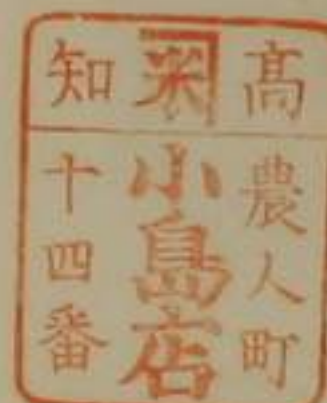 高知
米
農人町
小島店
十四番